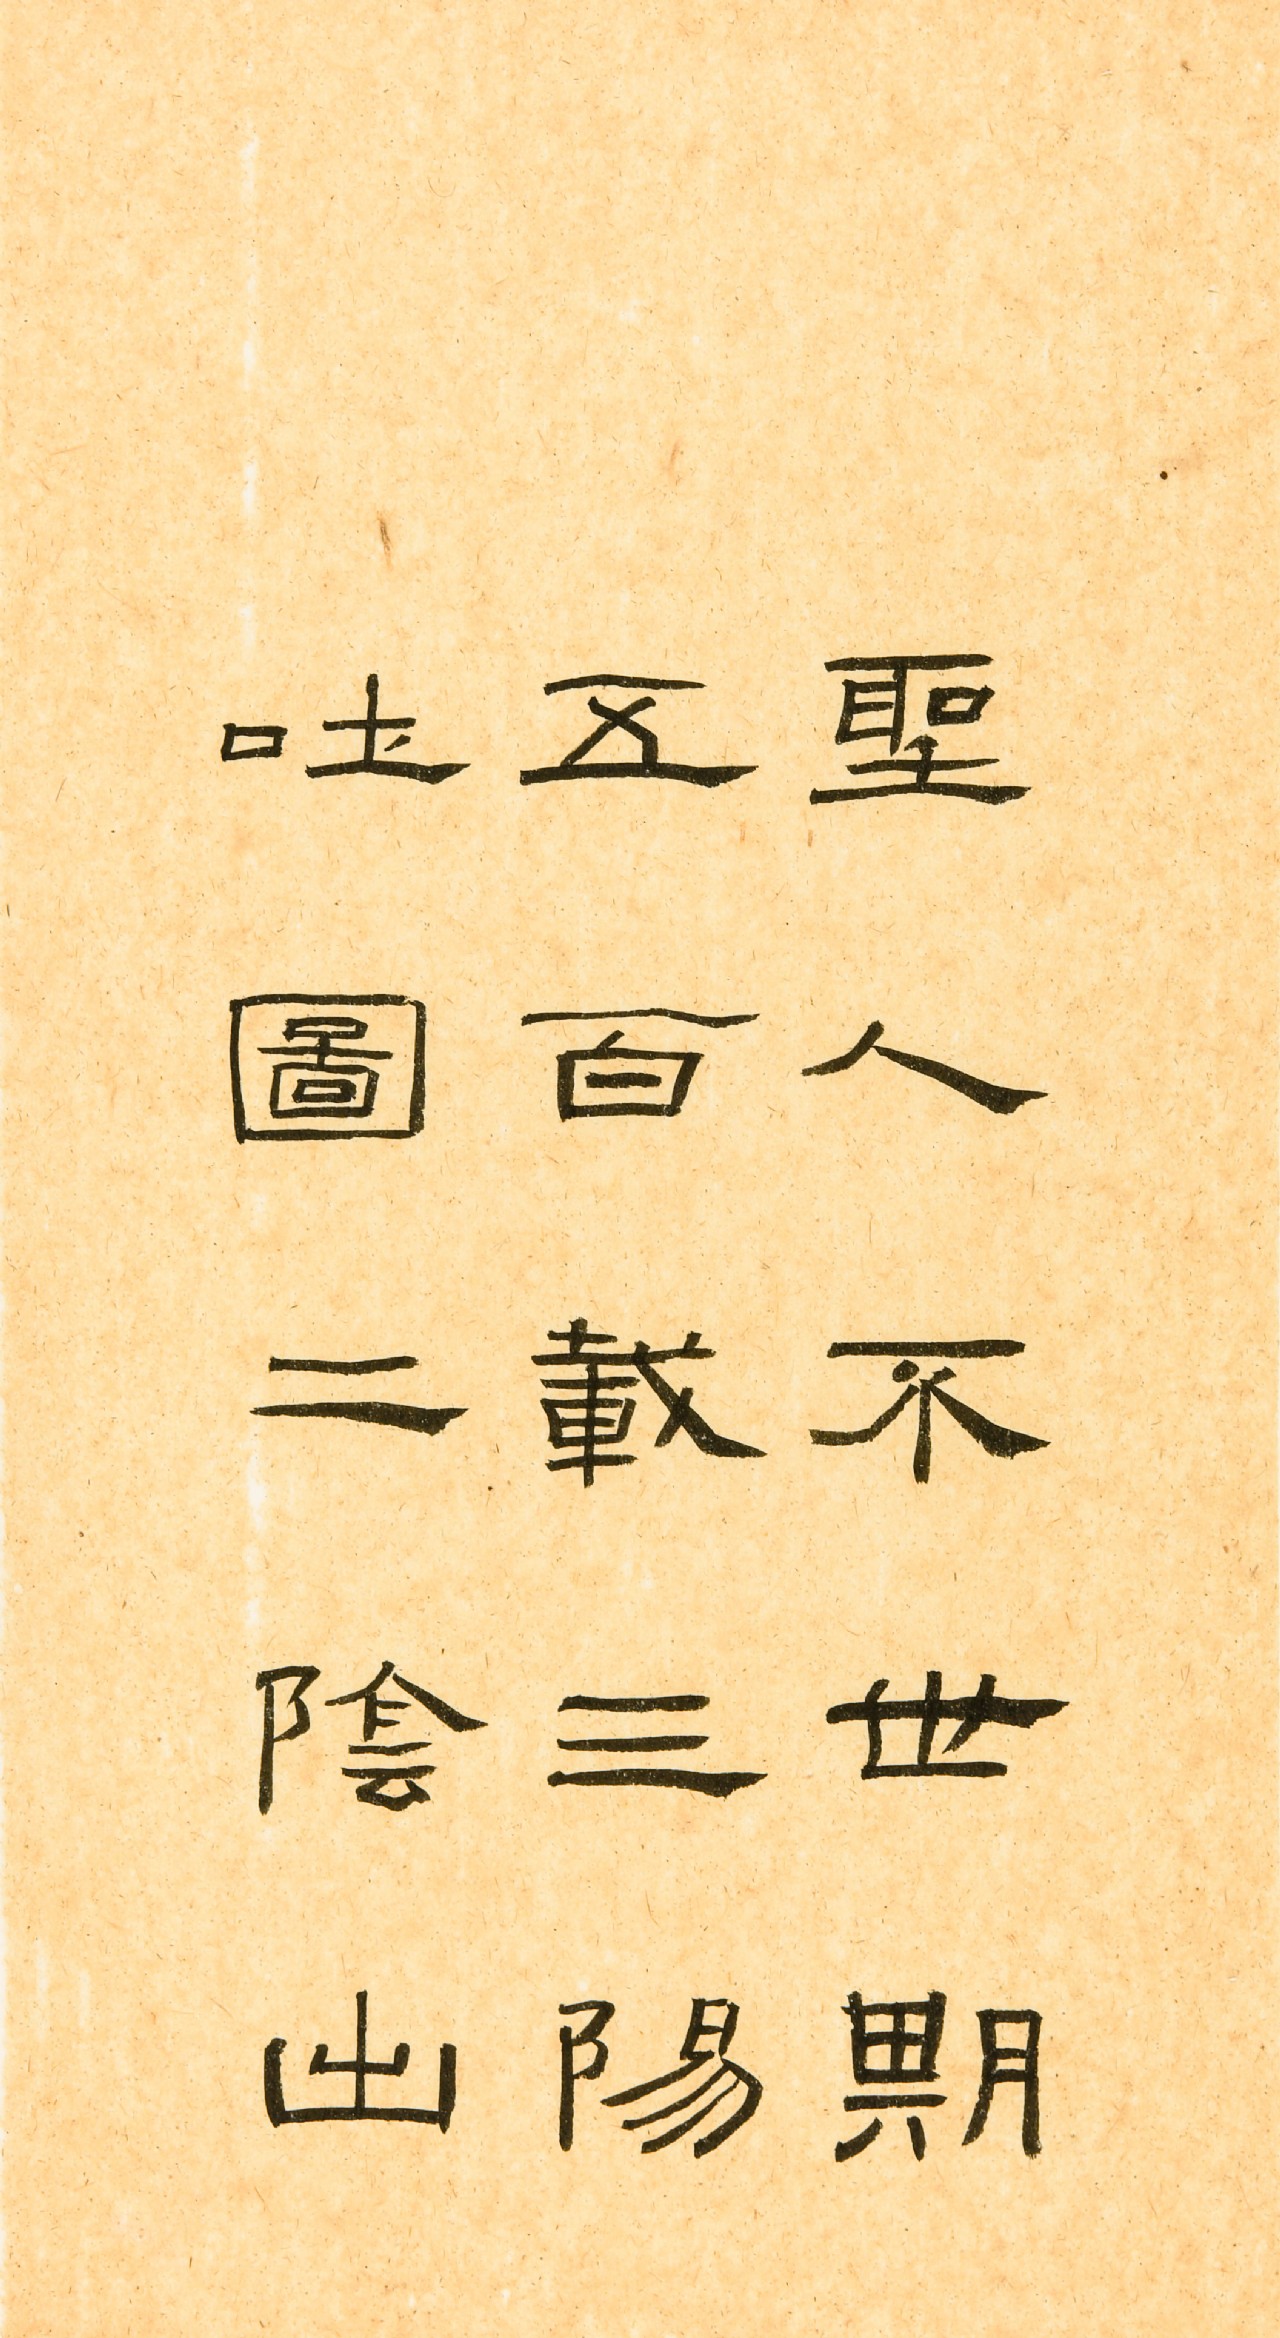 聖人不世期
五百載三陽
吐圖二陰出